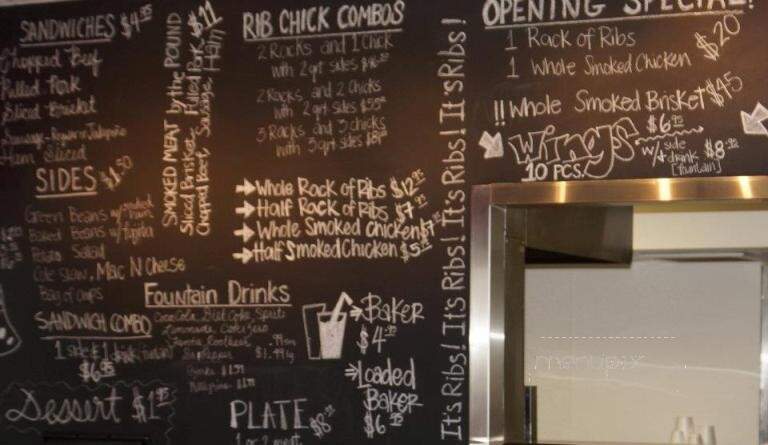 SANDWICHES $4.95
Chopped Beef
Pulled Pork
Sliced Brisket
Sausage - Regular or Jalapeño
Ham Sliced
SMOKED MEAT by the POUND $11
Sliced Brisket, Pulled Pork, Ham
Chopped Beef, Sausage,
SIDES $1.50
Green Beans w/ smoked ham
Baked Beans w/
Potato Salad
Cole Slaw, Mac N Cheese
Bag of Chips
SANDWICH COMBO
1 side & 1 drink
$6.95
Dessert $1.95
RIB CHICK COMBOS
2 Racks and 1 Chick
with 2 qrt sides
2 Racks and 2 Chicks
with 2 qrt sides
3 Racks and 3 chicks
with 3 qrt sides
Whole Rack of Ribs $12
Half Rack of Ribs $7
Whole Smoked Chicken $7
Half Smoked Chicken $5
Fountain Drinks
Coca Cola, Diet Coke, Sprite
Lemonade, Coke Zero
Fanta
Dr Pepper
Baker
$4
Loaded
Baker
$6
PLATE $8
1 or 2 meat
It's Ribs! It's Ribs! It's Ribs! It's Ribs! It's Ribs!
OPENING SPECIAL!
1 Rack of Ribs
1 Whole Smoked Chicken $20
!! Whole Smoked Brisket $45
Wings $6
10 PCS.
w/ side + drink $8
[fountain]
menupix